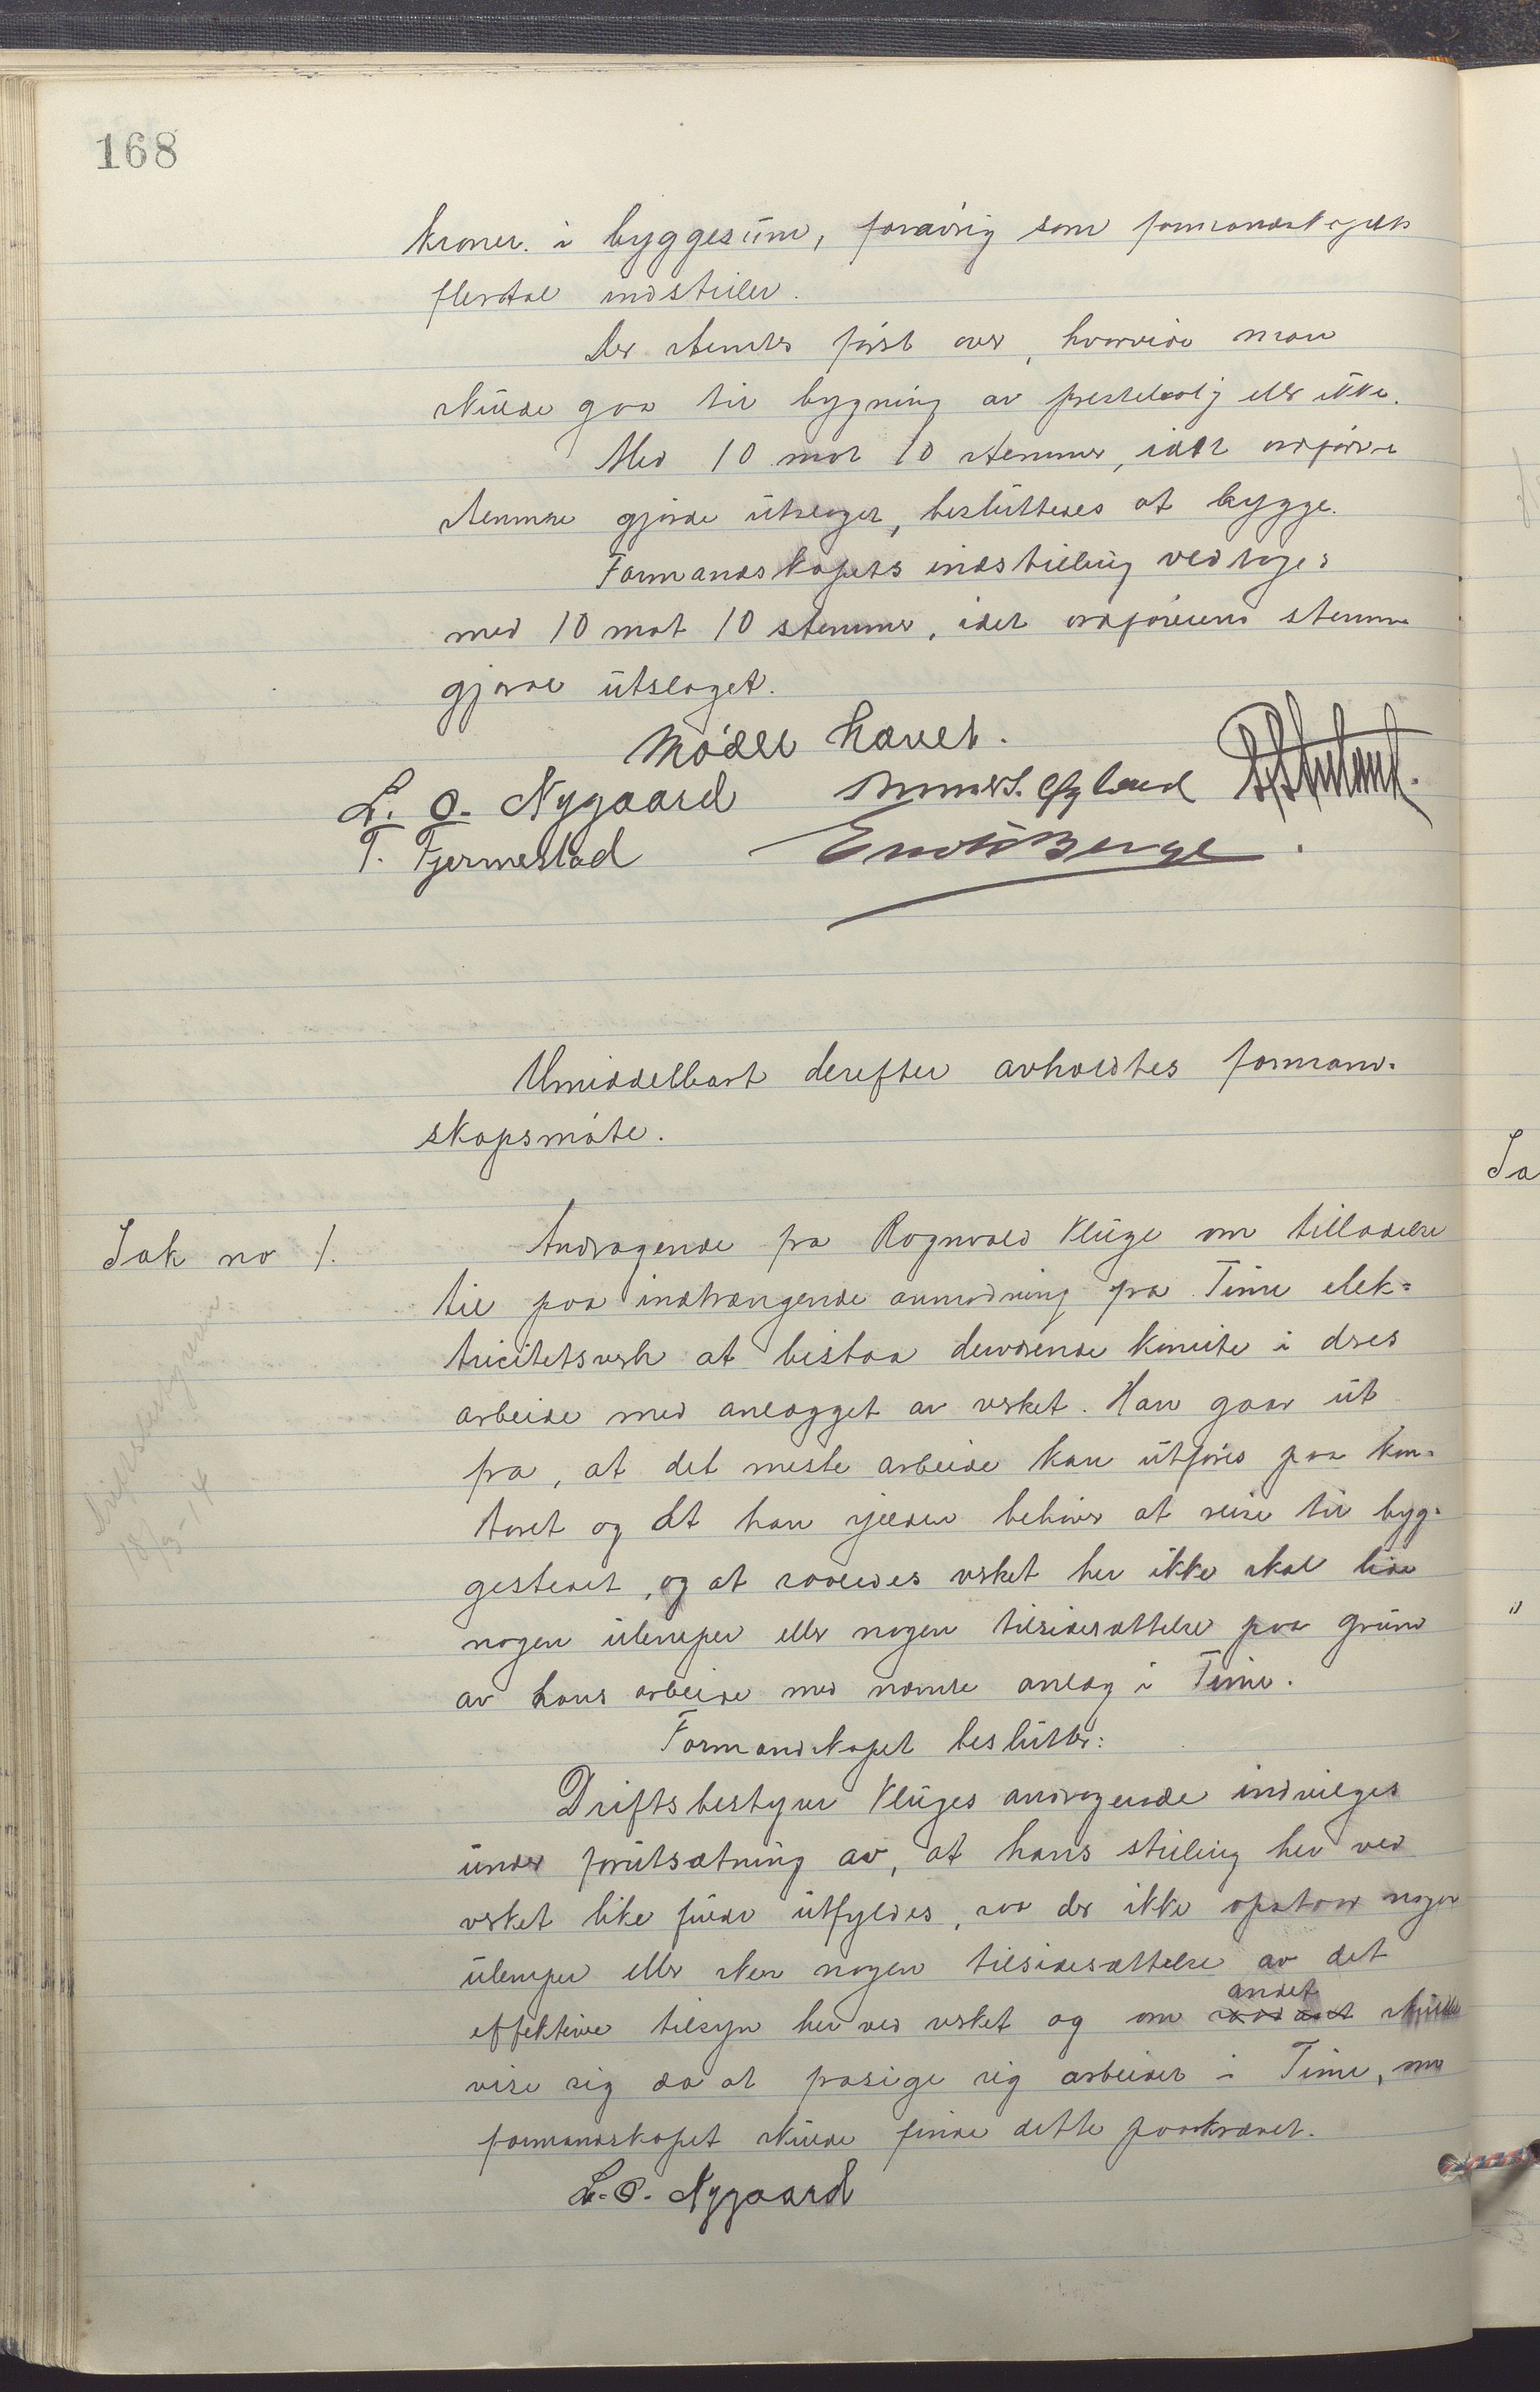 168
kroner i byggesum, forøvrig som formandskapets
flertal indstiller.
Der stemtes først over, hvorvidt man
skulde gaa til bygning av prestebolig eller ikke.
Med 10 mot 10 stemmer, idet ordførers
stemme gjorde utslaget, besluttedes at bygge.
Formandskapets indstilling vedtoges
med 10 mot 10 stemmer, idet ordførerens stemme
gjorde utslaget.
Mødet hævet.
L. O. Nygaard
T. Fjermestad Berge
Umiddelbart derefter avholdtes formand-
skapsmøte.
Sak no 1. Andragende fra Ragnvald Kluge om tilladelse
til paa indtrængende anmodning fra Time elek-
tricitetsverk at bistaa derværende komite i dres
arbeide med anlægget av verket. Han gaar ut
fra, at det meste arbeide kan utføres paa kon-
toret og at han sjelden behøver at reise til byg-
gestedet, og at saaledes verket her ikke skal lide
nogen ulemper eller nogen tilsidesættelse paa grund
av hans arbeide med nævnte anlæg i Time.
Driftsbestyreren
18/3-14
Formandskapet beslutter:
Driftsbestyrer Kluges andragende indvilges
under forutsætning av, at hans stilling her ved
verket like fuldt utfyldes, saa der ikke opstaar nogen
ulemper eller sker nogen tilsidesættelse av det
effektive tilsyn her ved verket og om andet skulde
vise sig da at frasige sig arbeidet i Time, om
formandskapet skulde finde dette paakrævet.
L. O. Nygaard